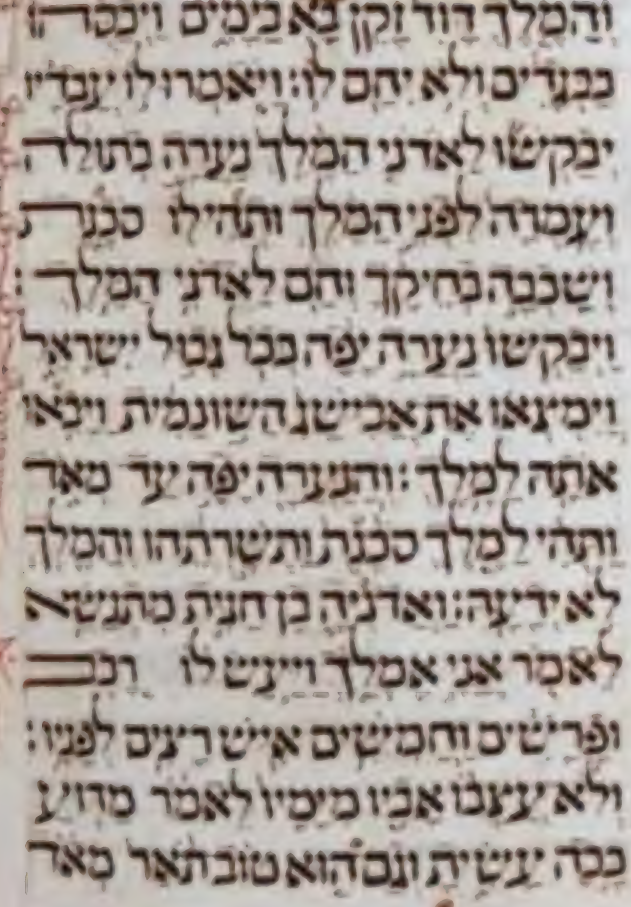 והמלך דוד זקן בא בימים ויכסהו
בבגדים ולא יחם לו: ויאמרו לו עבדיו
יבקשו לאדני המלך נערה בתולה
ועמדה לפני המלך ותהי לו סכנת
ושכבה בחיקך וחם לאדני המלך:
ויבקשו נערה יפה בכל גבול ישראל
וימצאו את אבישג השונמית ויבאו
אתה למלך: והנערה יפה עד מאד
ותהי למלך סכנת ותשרתהו והמלך
לא ידעה: ואדניה בן חגית מתנשא
לאמר אני אמלך ויעש לו רכב
ופרשים וחמשים איש רצים לפניו:
ולא עצבו אביו מימיו לאמר מדוע
ככה עשית וגם הוא טוב תאר מאד